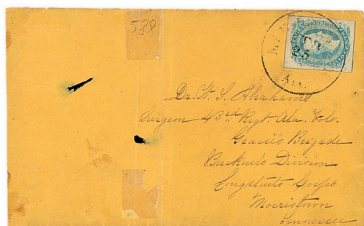 588
Ala.
Dr. W. S.
Surgeon 43rd Regt. Ala. Vols.
Gracie's Brigade
Buckner's Division
Longstreet's Corps
Morristown
Tennessee